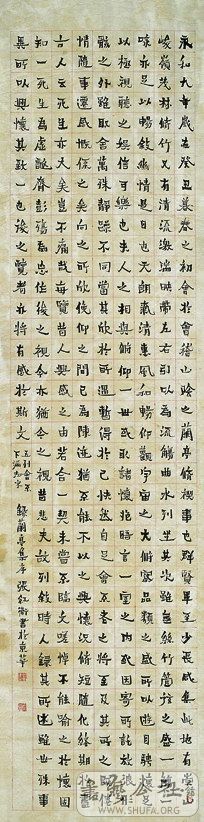 永和九年歲在癸丑暮春之初會於會稽山陰之蘭亭脩禊事也群賢畢至少長咸集此地有崇山
峻嶺茂林脩竹又有清流激湍映帶左右引以為流觴曲水列坐其次雖無絲竹管弦之盛一觴一
詠亦足以暢敘幽情是日也天朗氣清惠風和暢仰觀宇宙之大俯察品類之盛所以遊目騁懷足
以極視聽之娛信可樂也夫人之相與俯仰一世或取諸懷抱悟言一室之內或因寄所託放浪形
骸之外雖取舍萬殊靜躁不同當其欣於所遇暫得於己快然自足不知老之將至及其所之既倦
情隨事遷感慨係之矣向之所欣俯仰之間已為陳迹猶不能不以之興懷況脩短隨化終期於盡
古人云死生亦大矣豈不痛哉每覽昔人興感之由若合一契未嘗不臨文嗟悼不能喻之於懷固
知一死生為虛誕齊彭殤為妄作後之視今亦猶今之視昔悲夫故列敘時人錄其所述雖世殊事
異所以興懷其致一也後之覽者亦將有感於斯文
錄蘭亭集序張紅衛書於京華
書法公社
WWW.SHUFA.ORG